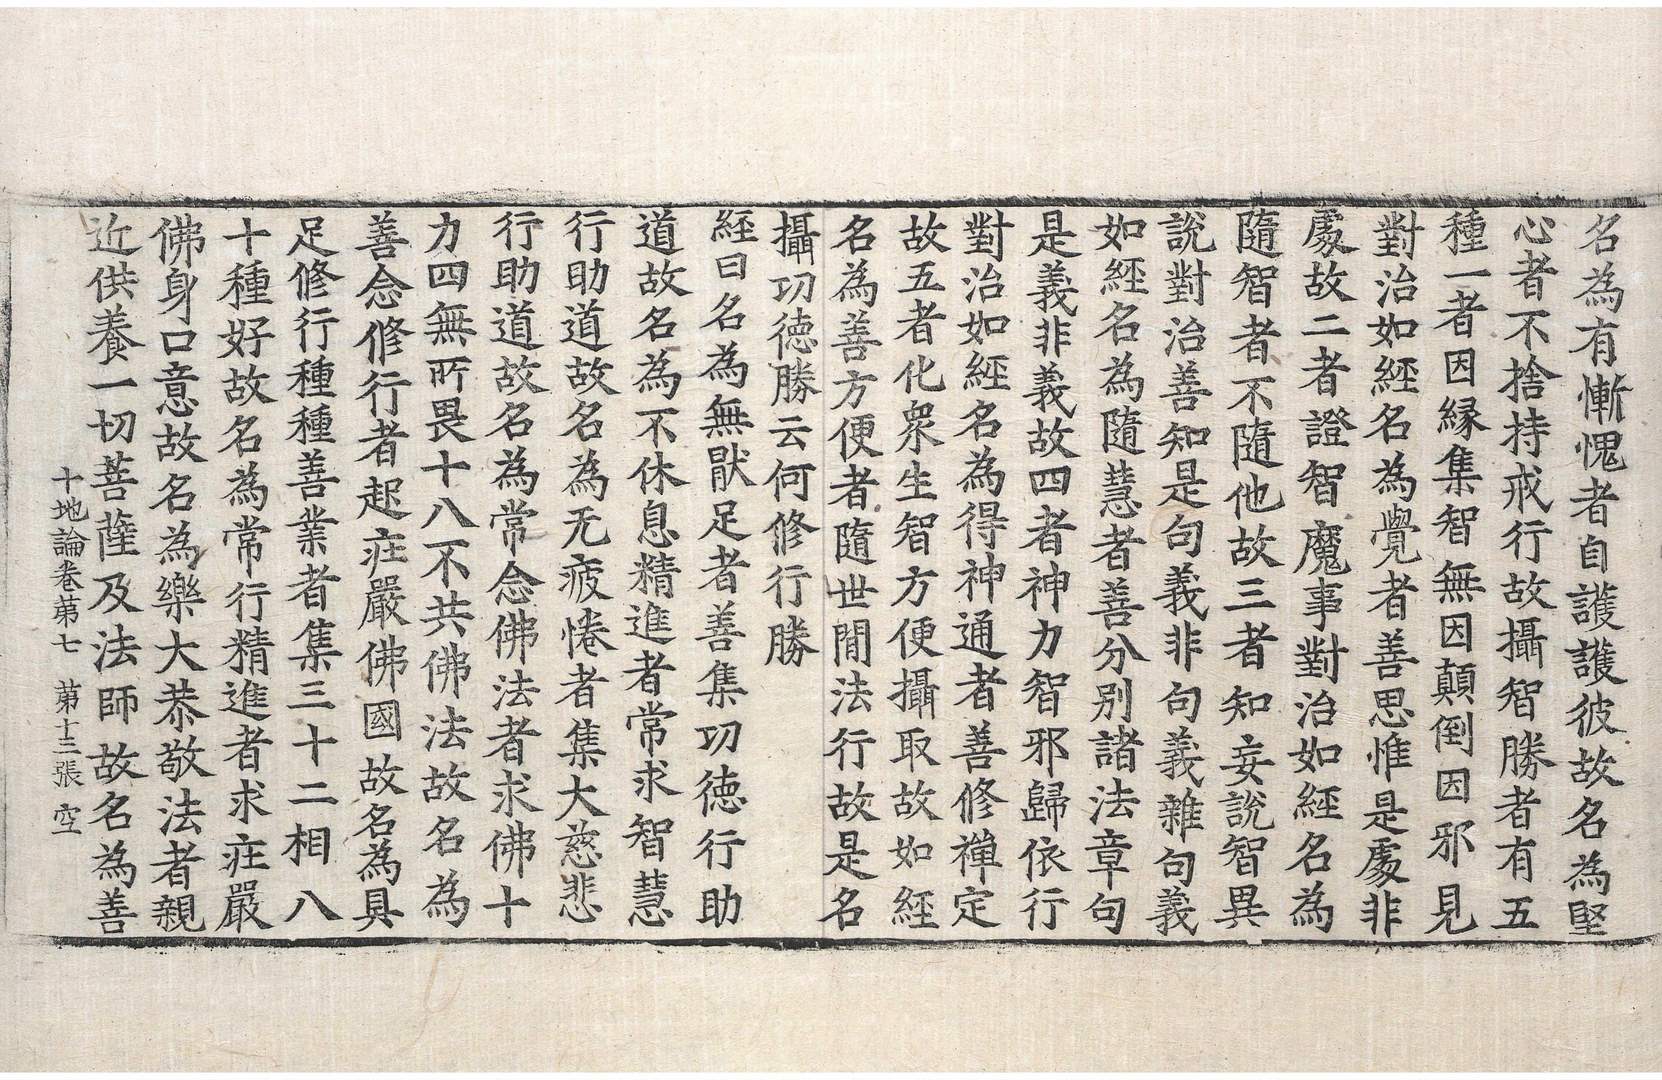 名為有慚愧者自護護彼故名為堅
心者不捨持戒行故攝智勝者有五
種一者因緣集智無因顛倒因邪見
對治如經名為覺者善思惟是處非
處故二者證智魔事對治如經名為
隨智者不隨他故三者知妄說智異
說對治善知是句義非句義雜句義
如經名為隨慧者善分別諸法章句
是義非義故四者神力智邪歸依行
對治如經名為得神通者善修禪定
故五者化衆生智方便攝取故如經
名為善方便者隨世間法行故是名
攝功德勝云何修行勝
經曰名為無猒足者善集功德行助
道故名為不休息精進者常求智慧
行助道故名為无疲惓者集大慈悲
行助道故名為常念佛法者求佛十
力四無所畏十八不共佛法故名為
善念修行者起莊嚴佛國故名為具
足修行種種善業者集三十二相八
十種好故名為常行精進者求莊嚴
佛身口意故名為樂大恭敬法者親
近供養一切菩薩及法師故名為善
十地論卷第七 第十三張 空